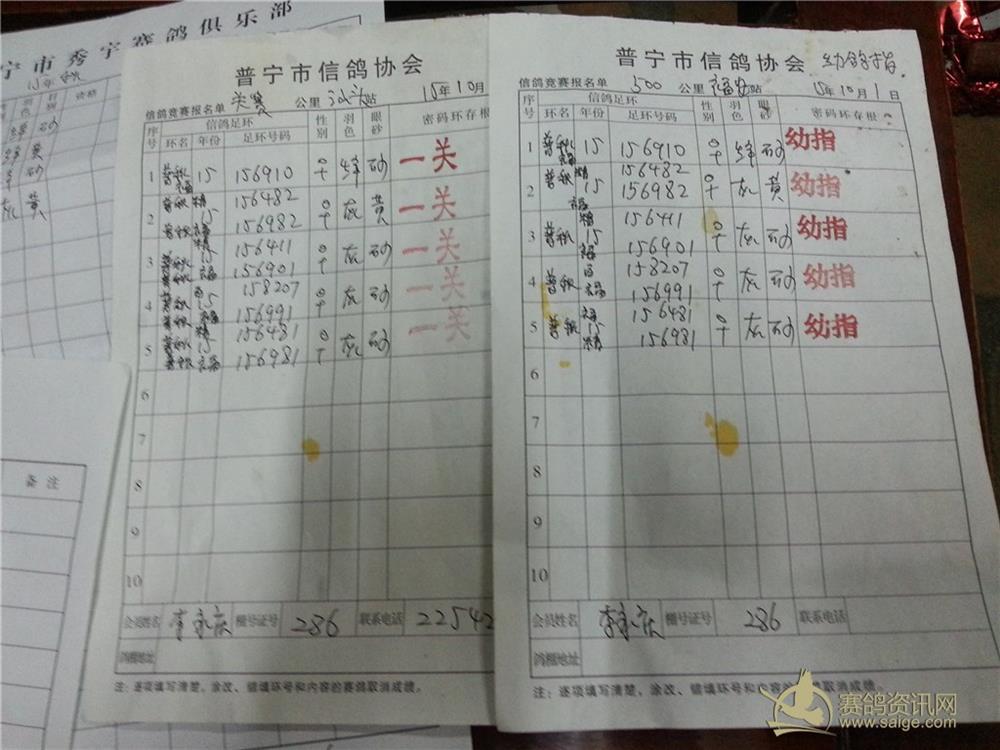 宁市秀宇赛鸽俱乐部
15年秋
备注
普宁市信鸽协会
信鸽竞赛报名单 公里 站 15年10月
序号 信鸽足环 性别 羽色 眼砂 密码环存根
环名 年份 足环号码
1 普秋 15 156910 ♀ 绛 砂 一关
156482
2 普秋 15 156982 ♀ 灰 黄 一关
156411
3 普秋 15 156901 ♀ 灰 砂 一关
158207
4 普秋 15 156991 ♀ 灰 砂 一关
156481
5 普秋 15 156981 ♀ 灰 砂 一关
6
7
8
9
10
会员姓名 李永庆 棚号证号 286 联系电话 22542
鸽棚地址
注：逐项填写清楚，涂改、错填环号和内容的赛鸽取消成绩。
普宁市信鸽协会 幼鸽指
信鸽竞赛报名单 500 公里 福安站 15年10月1日
序号 信鸽足环 性别 羽色 眼砂 密码环存根
环名 年份 足环号码
1 普秋 15 156910 ♀ 绛 砂 幼指
156482
2 普秋 15 156982 ♀ 灰 黄 幼指
156411
3 普秋 15 156901 ♀ 灰 砂 幼指
158207
4 普秋 156991 ♀ 灰 砂 幼指
156481
5 普秋 15 156981 ♀ 灰 砂 幼指
6
7
8
9
10
会员姓名 李永庆 棚号证号 286 联系电话
鸽棚地址
注：逐项填写清楚，涂改、错填环号和内容的赛鸽取消成
赛鸽资讯网
www.saige.com